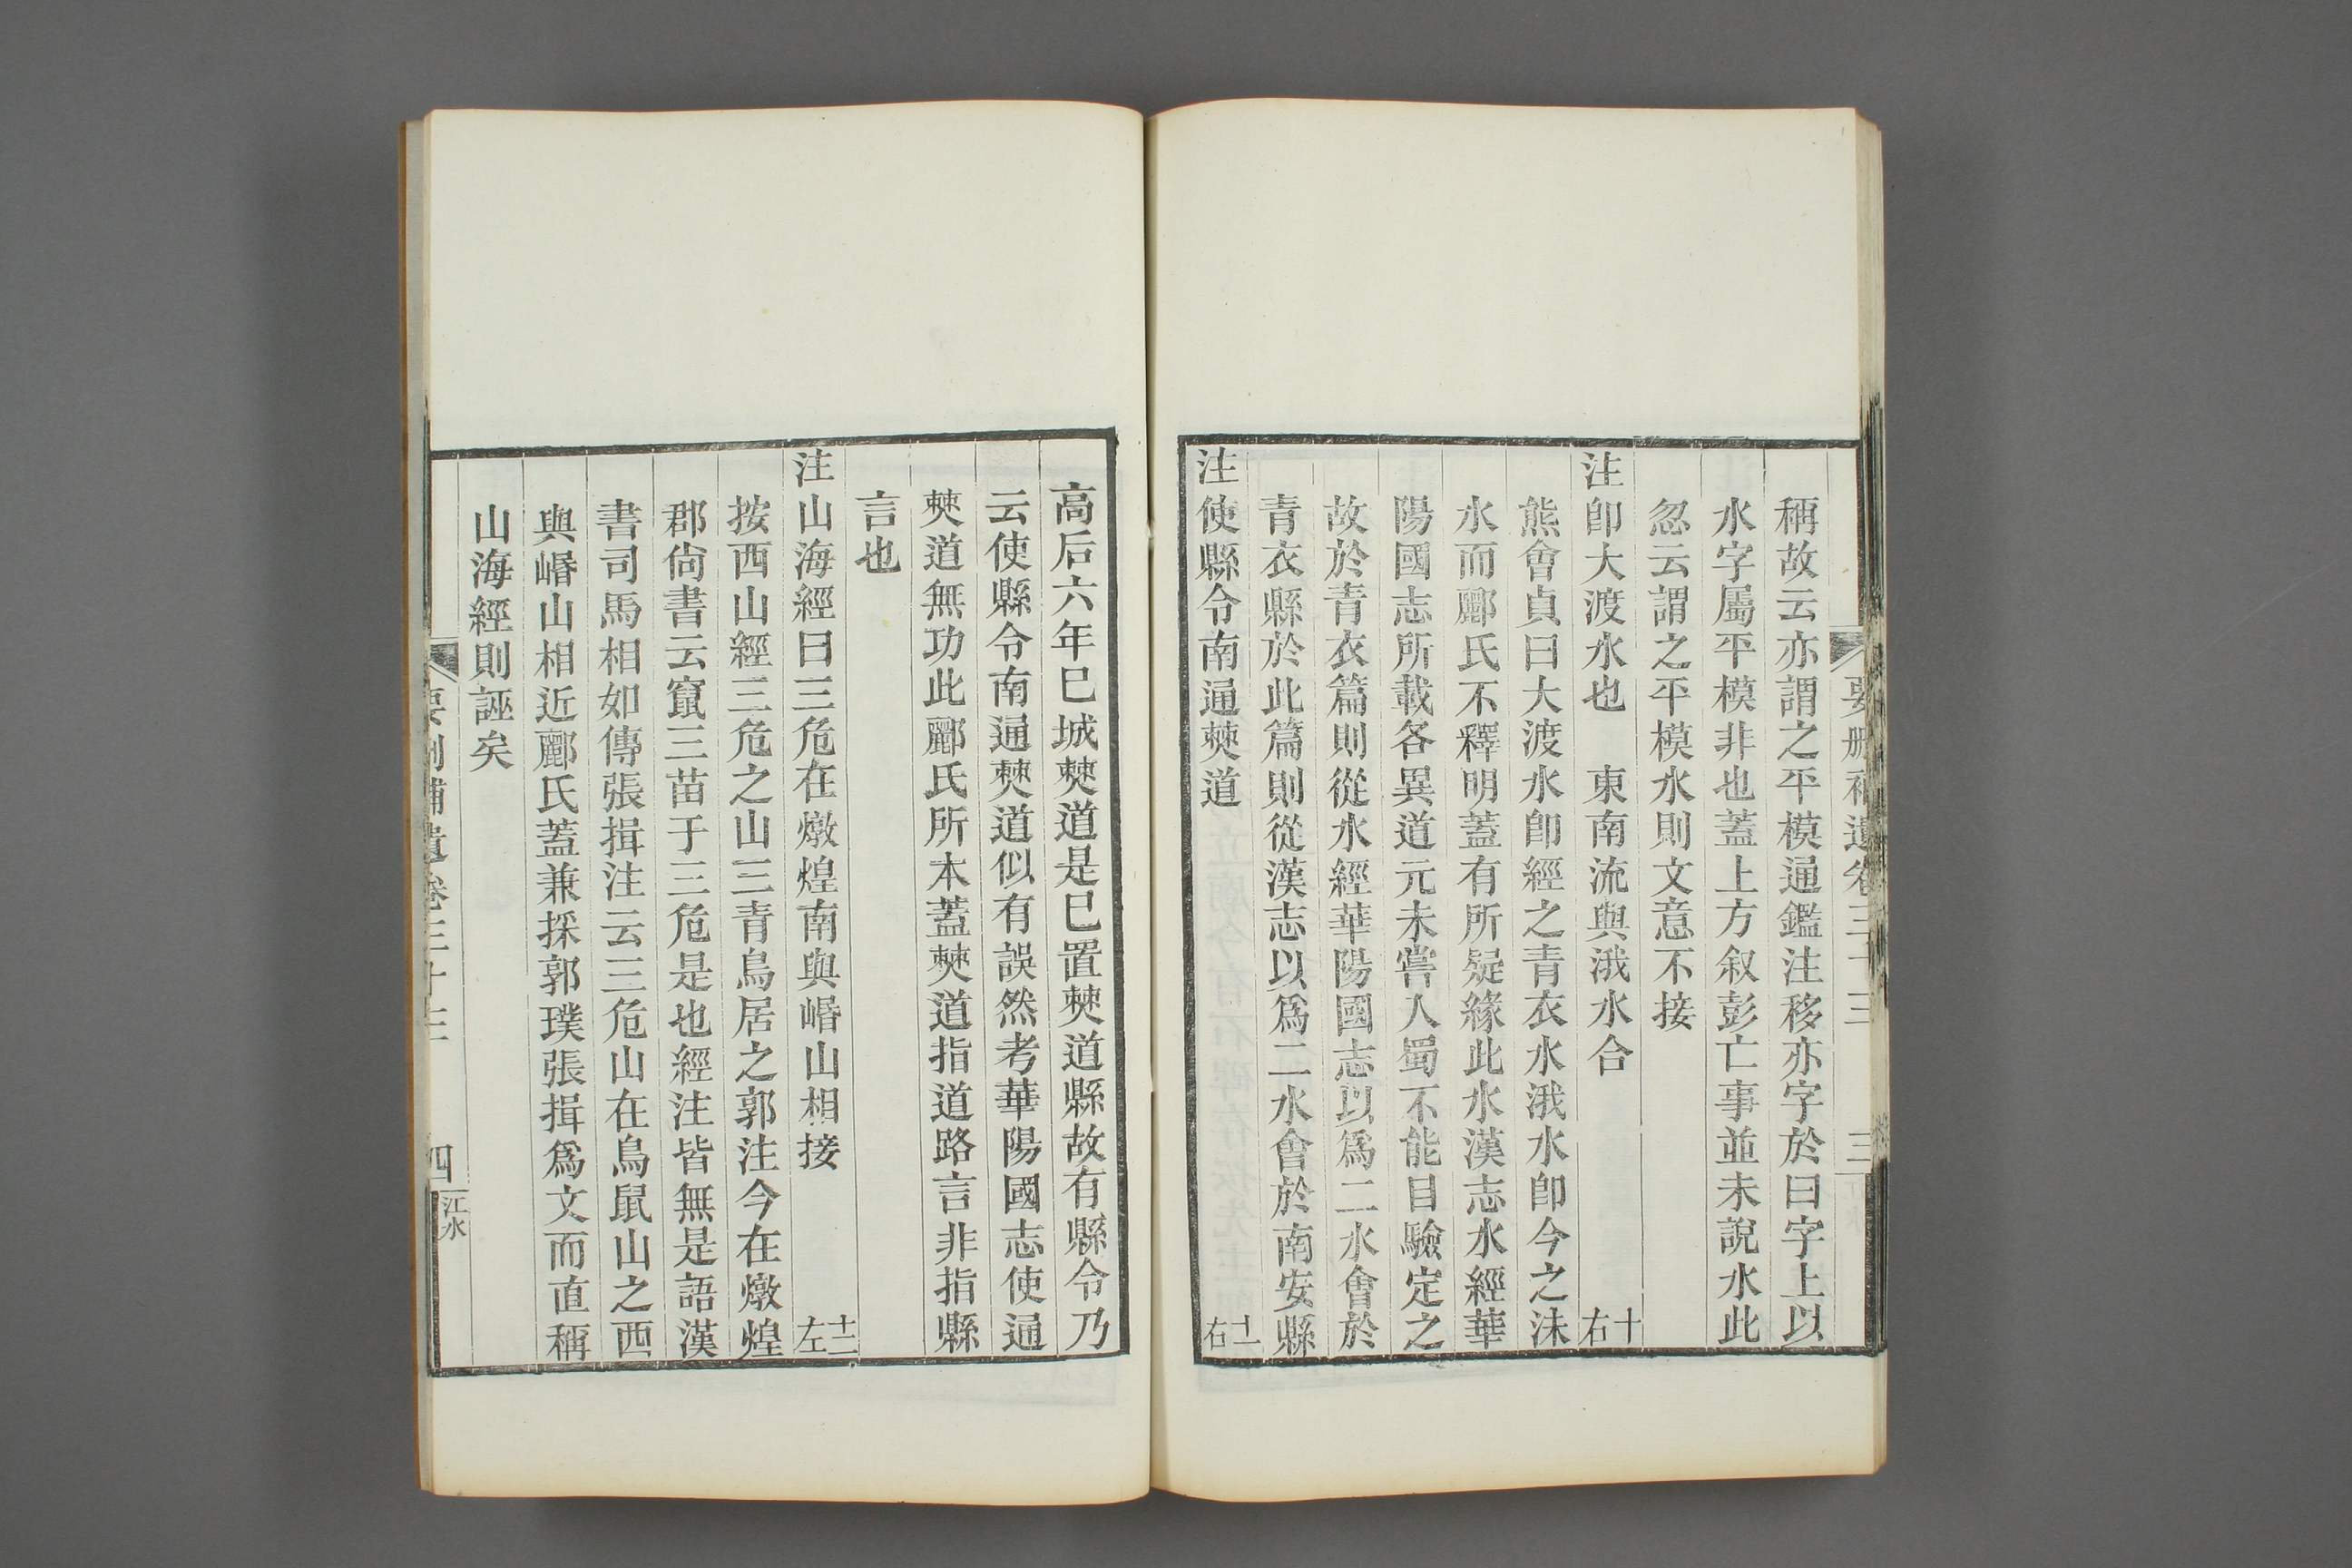 要刪補遺卷三十三 三
稱故云亦謂之平模通鑑注移亦字於曰字上以
水字屬平模非也蓋上方叙彭亡事並未說水此
忽云謂之平模水則文意不接
注卽大渡水也 東南流與涐水合 十右
熊會貞曰大渡水卽經之青衣水涐水卽今之沬
水而酈氏不釋明蓋有所疑緣此水漢志水經華
陽國志所載各異道元未嘗入蜀不能目驗定之
故於青衣篇則從水經華陽國志以爲二水會於
青衣縣於此篇則從漢志以爲二水會於南安縣
注使縣令南通僰道 十一右
高后六年已城僰道是已置僰道縣故有縣令乃
云使縣令南通僰道似有誤然考華陽國志使通
僰道無功此酈氏所本蓋僰道指道路言非指縣
言也
注山海經曰三危在燉煌南與崏山相接 十二左
按西山經三危之山三青鳥居之郭注今在燉煌
郡尙書云竄三苗于三危是也經注皆無是語漢
書司馬相如傳張揖注云三危山在鳥鼠山之西
與崏山相近酈氏蓋兼採郭璞張揖爲文而直稱
山海經則誣矣
要刪補遺卷三十三 四 江水